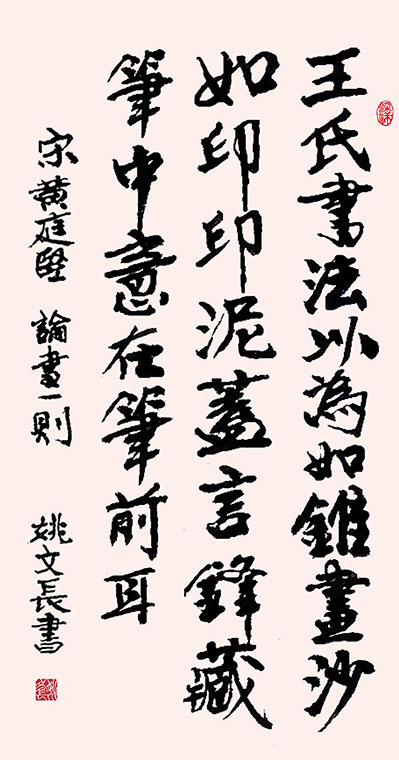 王氏書法以為如錐畫沙
如印印泥蓋言鋒藏
筆中意在筆前耳
宋黃庭堅 論書一則 姚文長書